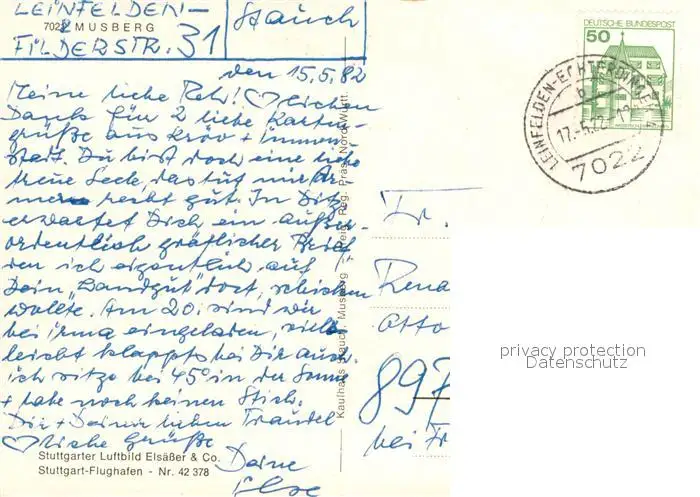 LEINFELDEN-
7022 MUSBERG
FILDERSTR. 31
Stauch
den 15.5.82
Meine liebe Reh! ♡lichen
Dank für 2 liebe Karten-
grüße aus Kröv + Immen-
stadt. Du bist doch eine liebe
treue Seele, das tut mir Ar-
men recht gut. In Ditz.
erwartet Dich ein außer-
ordentlich gräflicher Brief
den ich eigentlich auf
Dein "Landgut" dort, schicken
wollte. Am 20. sind wir
bei Irma eingeladen, viel-
leicht klappts bei Dir auch.
ich sitze bei 45° in der Sonne
+ habe noch keinen Stich.
Dir + Deiner lieben Traudel
♡liche Grüße
Deine
Else
Stuttgarter Luftbild Elsäßer & Co.
Stuttgart-Flughafen - Nr. 42 378
Kaufhaus Stauch, Musberg
Freig. Reg. Präs. Nord-Württ.
DEUTSCHE BUNDESPOST
50
LEINFELDEN-ECHTERDINGEN
b
17.-5.82-1
7022
Fr.
Rena
Otto
897
bei Fr
privacy protection
Datenschutz